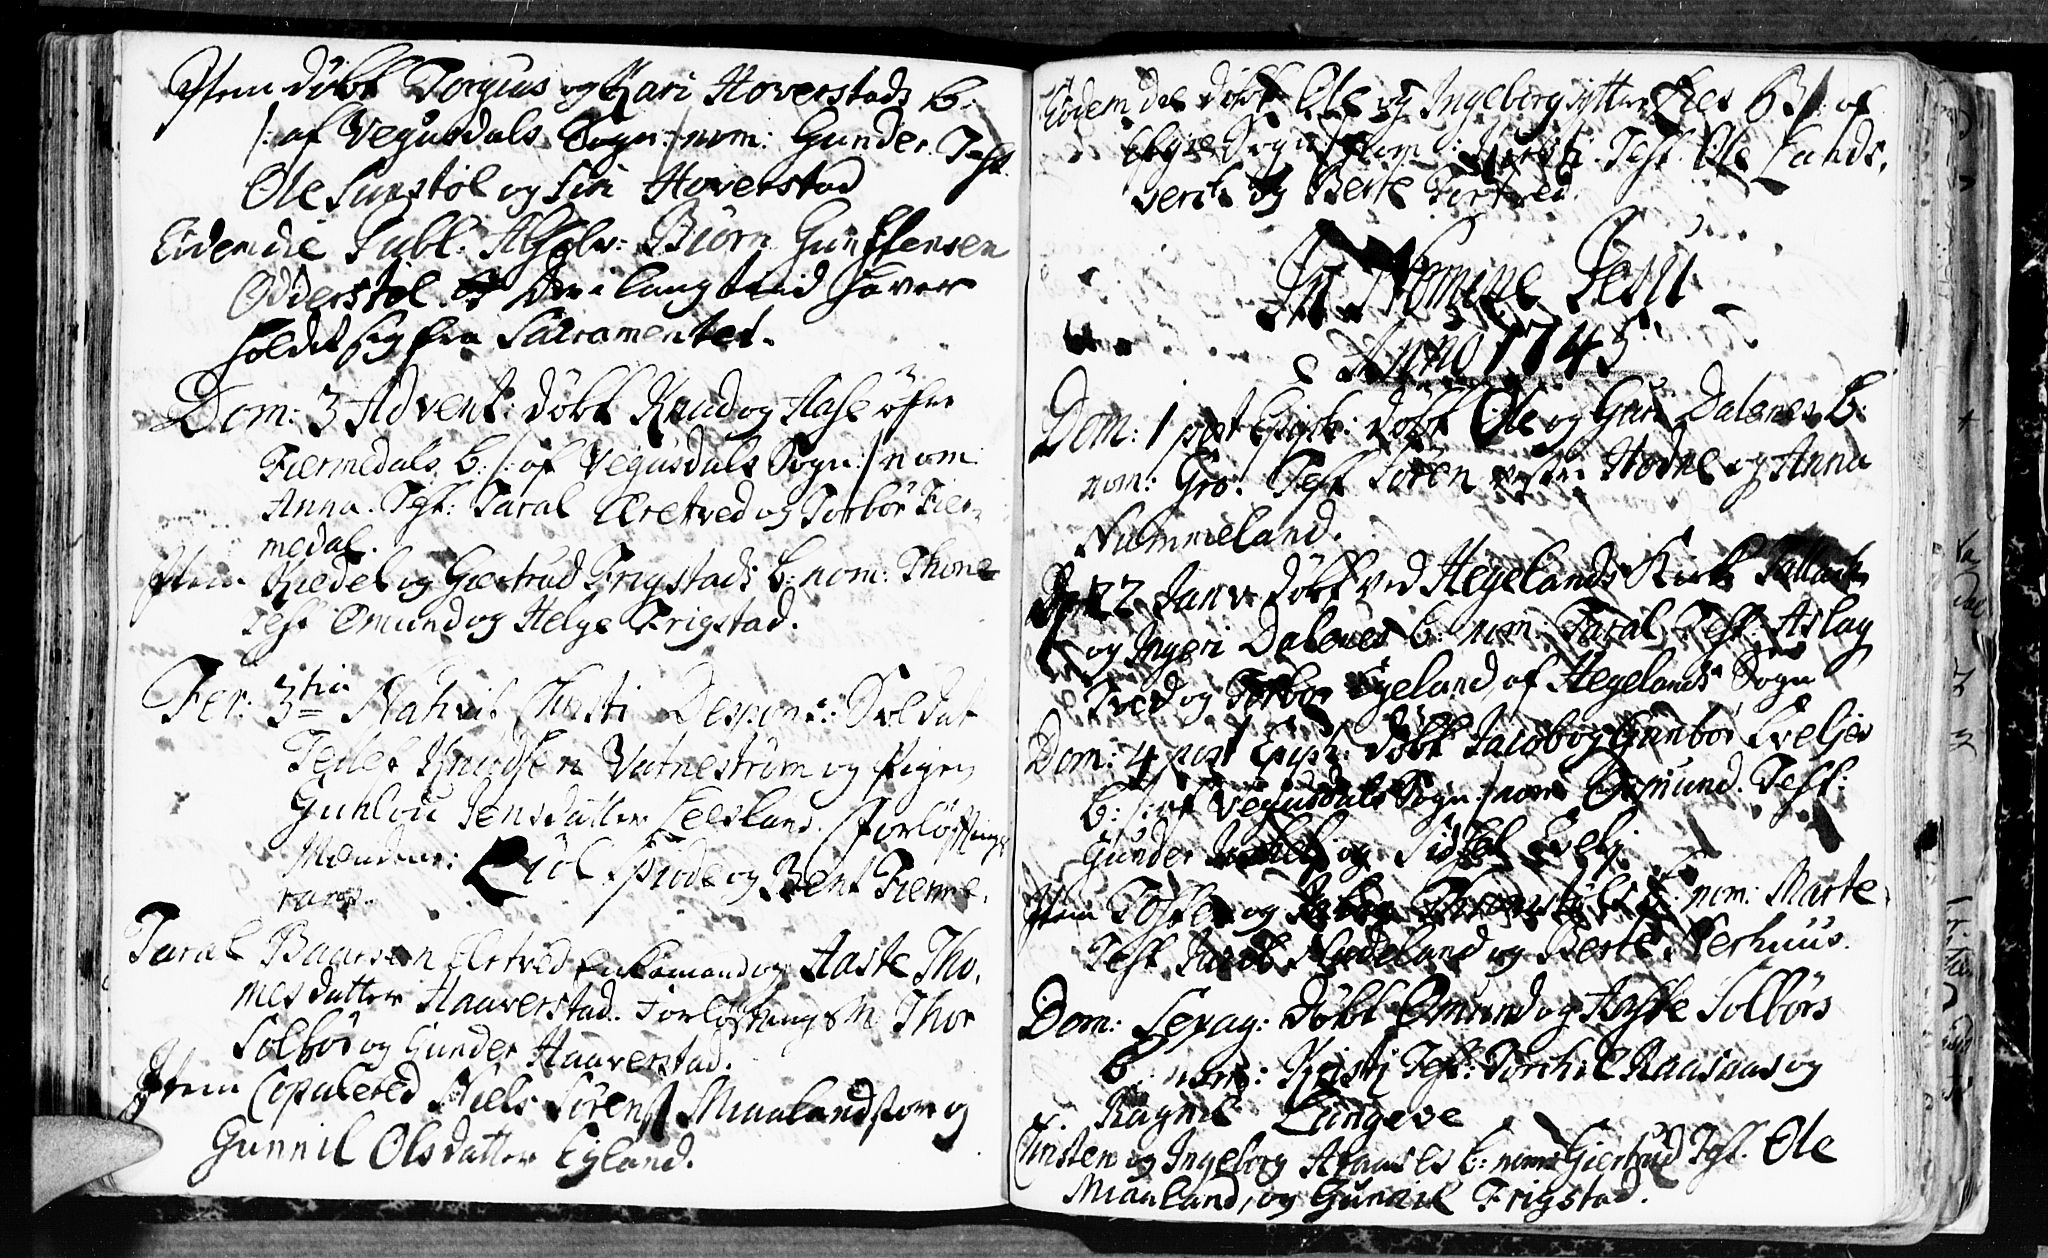 Item döbt Torgius og Kari Hoverstads b:
/: af Vegusdals Sogn:/ nom: Gunder. Test
Ole Sunstöl og Siri Hoverstad
Eidem die Publ. Absolv: Biörn Gunstensen
Odderstöl i lang tiid haver
holdet sig fra Sacramentet.
Dom: 3 Advent: döbt Knud og Aase öfre
Fiermedals b: /: af Vegusdals Sogn:/ nom
Anna. Test: Taral Eretved og Torbör Fier-
medal.
Item Kiedel og Giertrud Frigstads b: nom: Thone
Test Omund og Helge Frigstad.
Fer: 3tia Nativit Christi Despons: Soldat
Tellef Knudsen Vatneström og Pigen
Gunlou Jensdatter Leesland. Forlöftnings
Mændene: Eiul Spiode og Bent Fieme-
raas.
Taral Baarsen Ertved Enkemand og Aaste Tho-
mesdatter Haaverstad. Forlöftnings M Thor
Solbör og Gunder Haaverstad.
Item Copulered Niels Sörens: Miaaland og
Gunnil Olsdatter Egland.
Eodem die döbt Ole og Ingeborg ytter Lies b /: af
Sogn nom: Kirsti. Test. Ole Lands-
verk og Berte Tortved.
In Nomine Jesu
Anno 1745
Dom: 1 post Epiph: döbt Ole og Guri Dalenes b:
nom: Gro. Test Sören Hodne og Anna
Nummeland.
D 22 Janv: döbt ved Hegelands Kirke Tallack
og Ingeri Dalenes b: nom: Taral Test: Aslag
Tved og Torbor Egeland, af Hegelands Sogn
Dom: 4 post Epiph: döbt Jacob og Gunbor Eveljes
b: /: af Vegusdals Sogn:/ nom Osmund. Test:
Gunder og Sidsel Evelj.
Item Tosten og b. nom: Marte
Test Jacob Hodeland og Berte Nerhuus.
Dom: Sexag: döbt Omund og Aaste Solbörs
b: nom: Kristi Test: Torkil Raasaas og
Ragnil Langeve
Christen og Ingeborg Aaases b: nom: Giertrud Test. Ole
Miaaland, og Gunnil Frigstad.